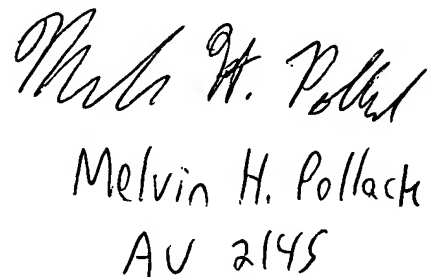 Melvin H. Pollack
Melvin H. Pollack
AU 2145